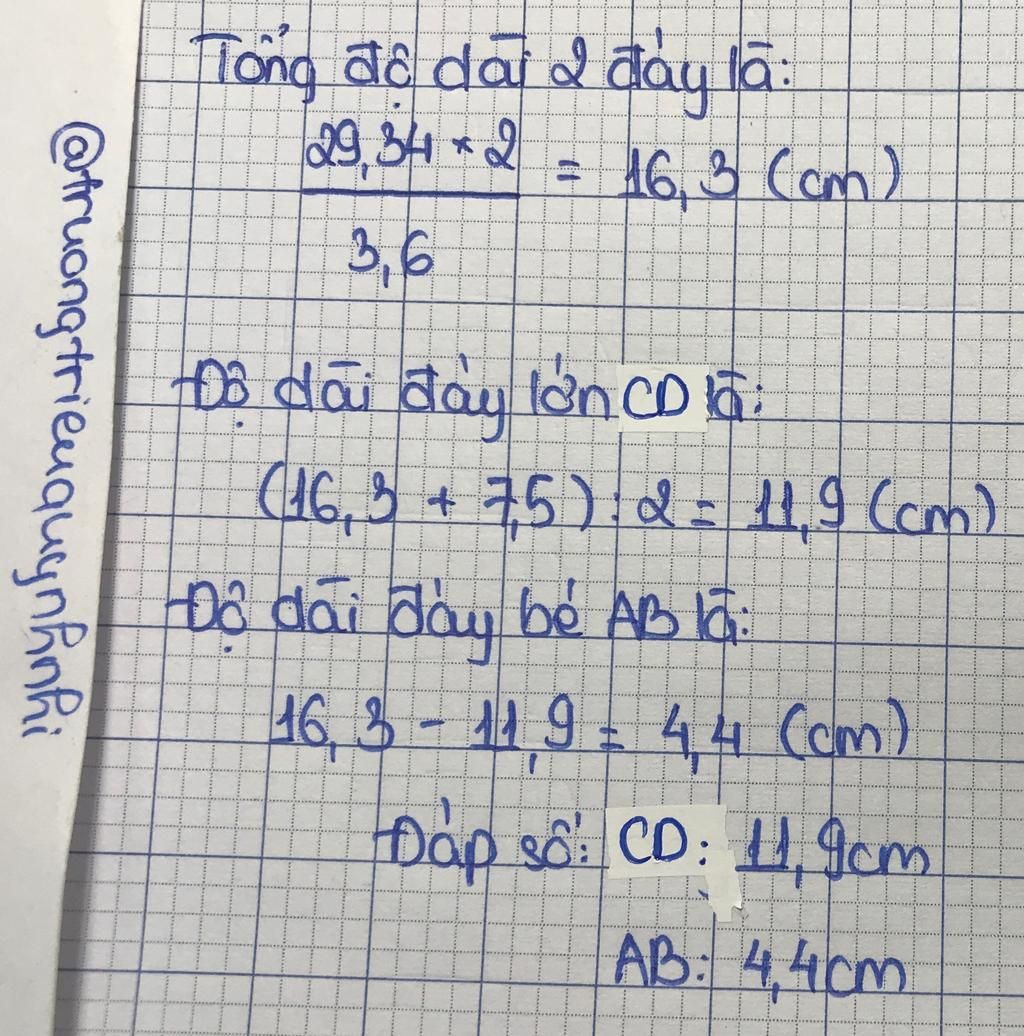 Tổng độ dài 2 đáy là:
29,34 × 2
= 16,3 (cm)
3,6
Độ dài đáy lớn CD là:
(16,3 + 7,5) : 2 = 11,9 (cm)
Độ dài đáy bé AB là:
16,3 - 11,9 = 4,4 (cm)
Đáp số: CD: 11,9cm
AB: 4,4cm
@truongtrieuquynhnhi